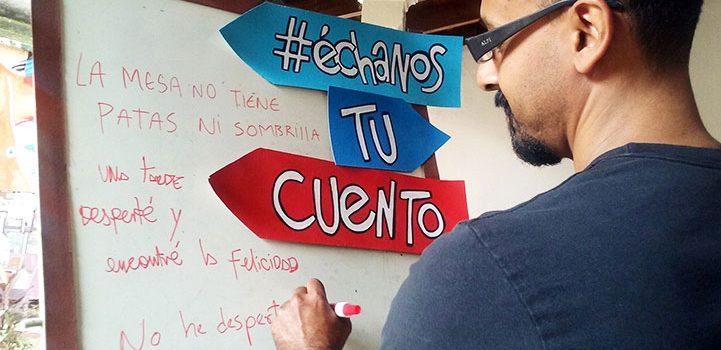 #échanos
TU
CUENTO
LA MESA NO TIENE
PATAS NI SOMBRILLA
una tarde
desperté y
encontré la felicidad
No he despert